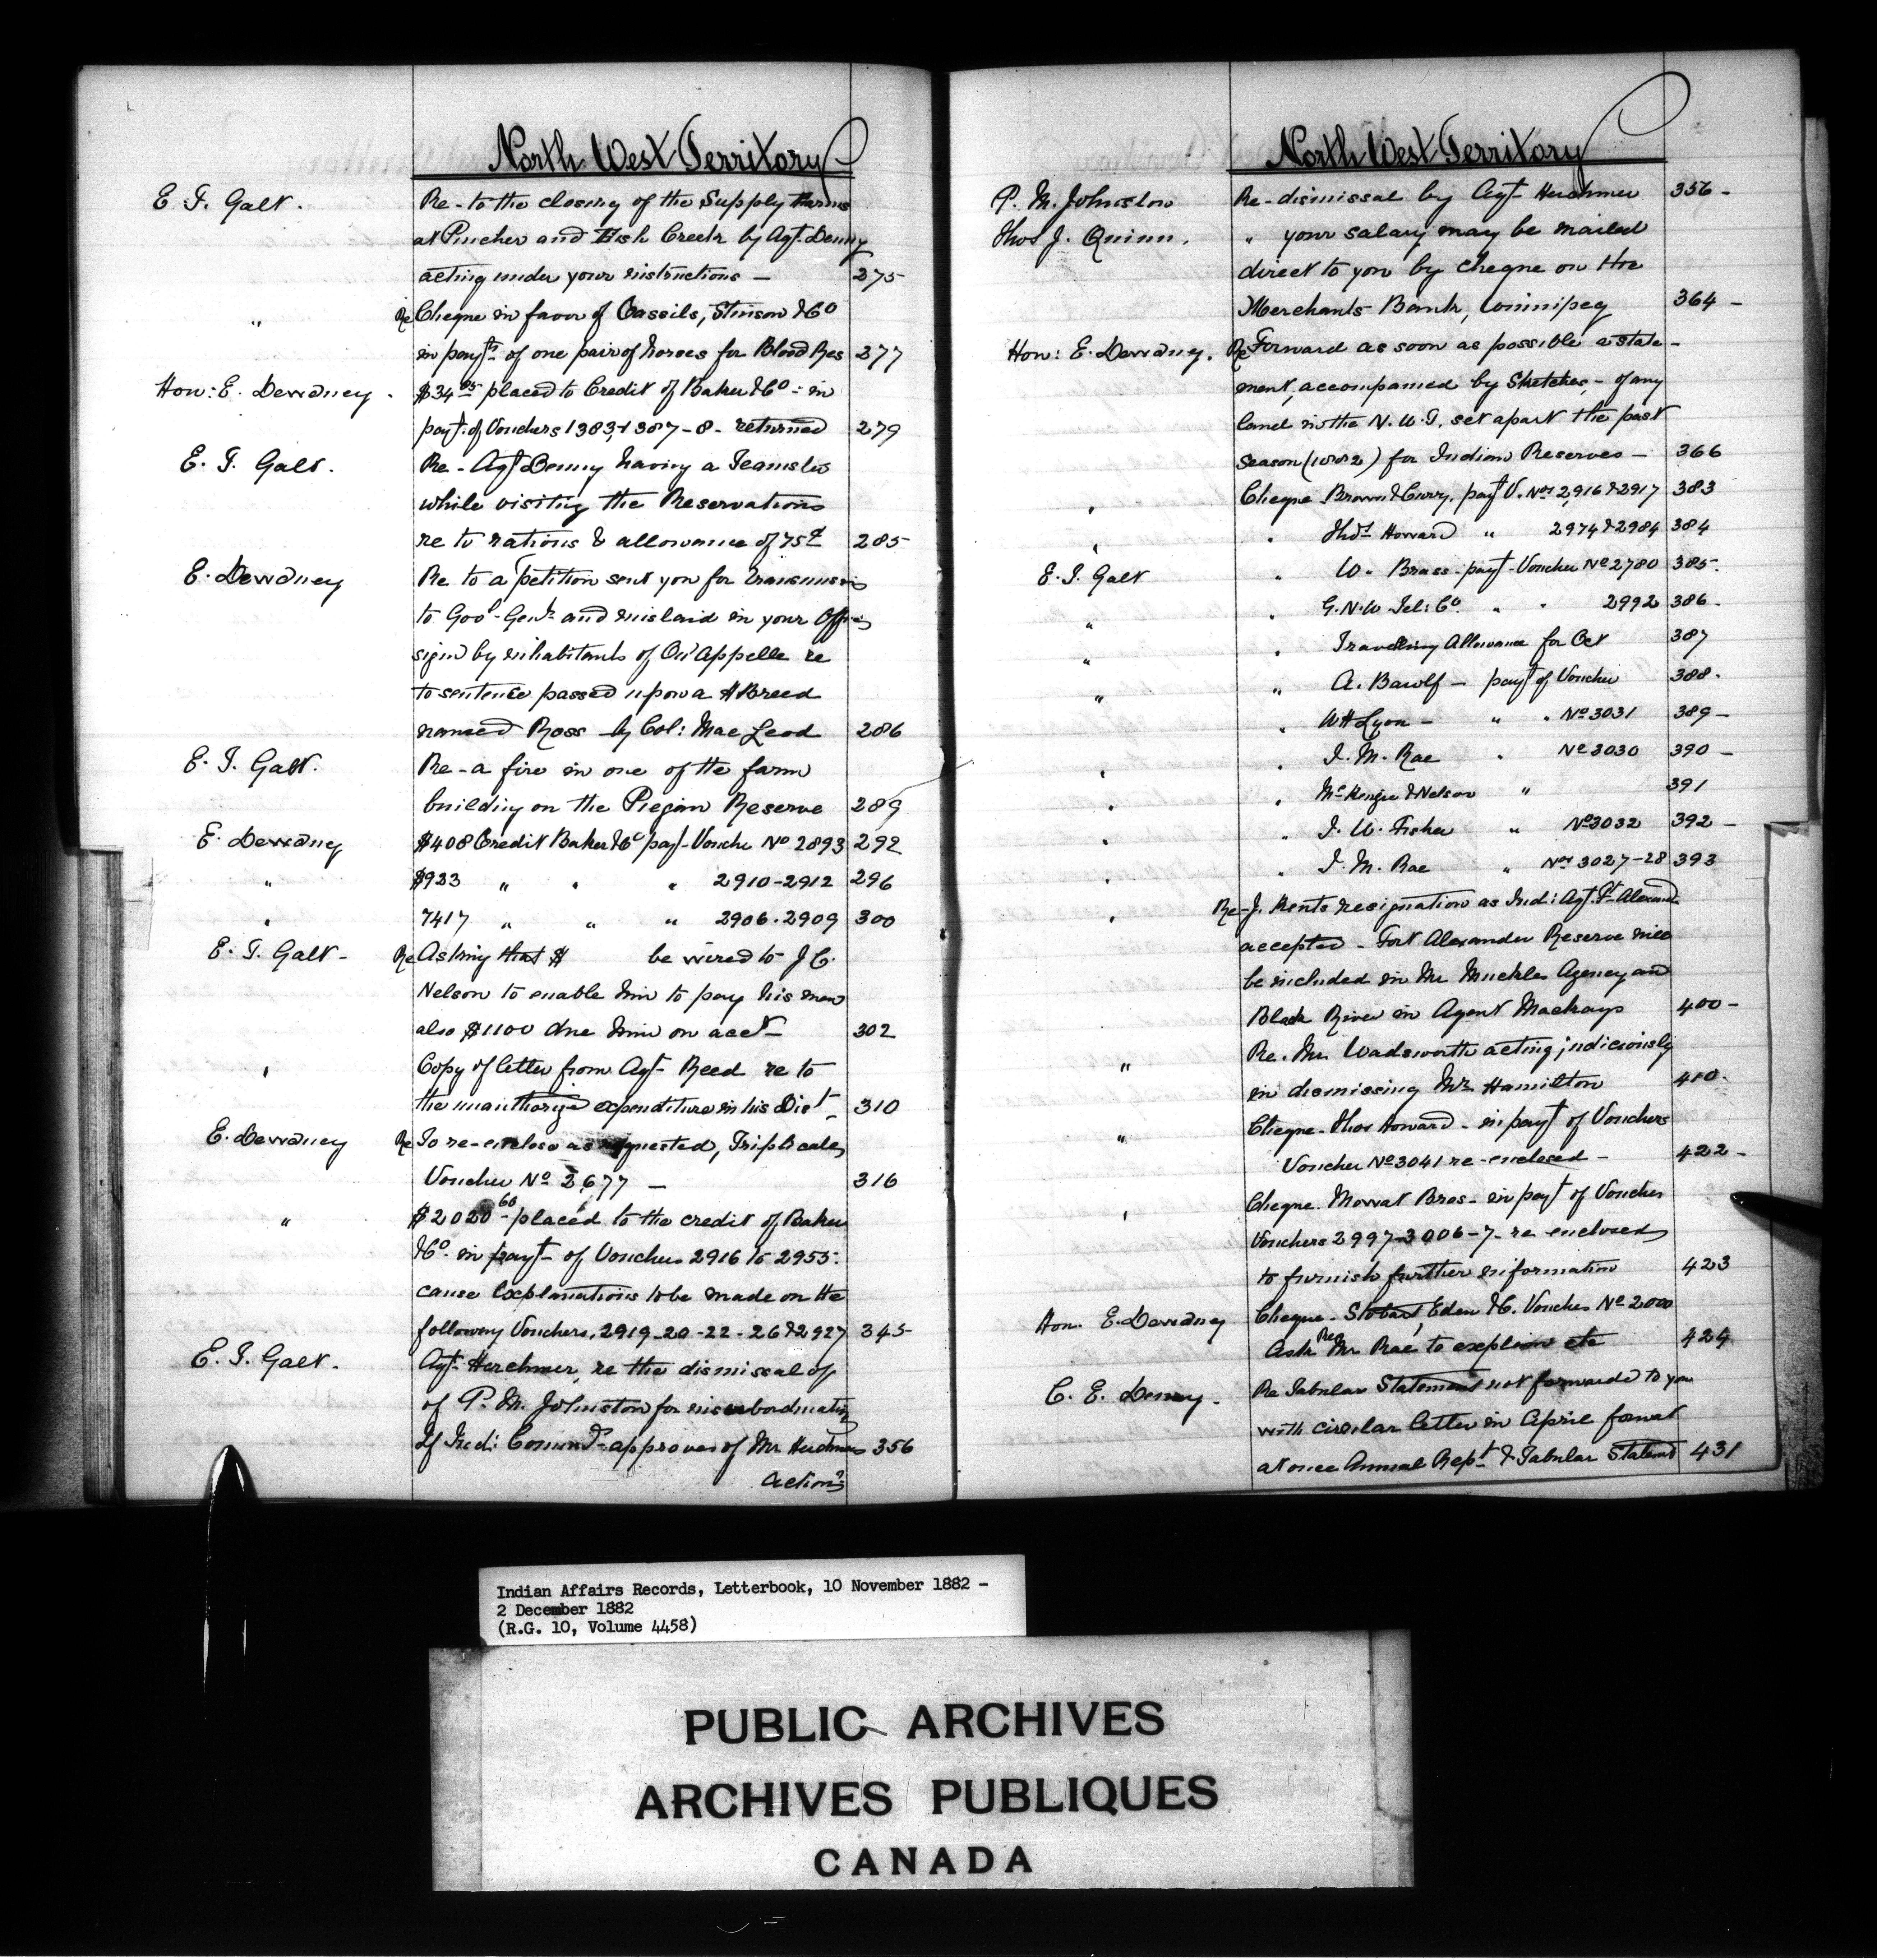 North West Territory
E. T. Galt. Re - to the closing of the Supply Farms
at Pincher and Fish Creek by Agt. Denny
acting under your instructions — 275
" Re Cheque in favor of Cassils, Stinson & Co
in payt. of one pair of horses for Blood Res 277
Hon: E. Dewdney. $34.05 placed to Credit of Baker & Co: in
payt. of Vouchers 1383, & 387-8- returned 279
E. T. Galt. Re - Agt Denny having a Teamster
while visiting the Reservations
re to rations & allowance of 75¢ 285
E. Dewdney Re to a petition sent you for transmission
to Govr. Genl. and mislaid in your Office
sign by inhabitants of Qu'Appelle re
to sentence passed upon a H Breed
named Ross by Col: Mac Leod 286
E. T. Galt. Re - a fire in one of the farm
building on the Piegan Reserve 289
E. Dewdney $408 Credit Baker & Co payt. Vouche No 2893 292
" $933 " " " 2910-2912 296
" 7417 " " " 2906. 2909 300
E. T. Galt - Re Asking that $ be wired to J. C.
Nelson to enable him to pay his men
also $1100 due him on acct - 302
" Copy of letter from Agt. Reed re to
the unauthorize expenditure in his Dist. 310
E. Dewdney Re To re-enclose as requested, Triplicate
Voucher No 2677 — 316
" $2020 60 - placed to the credit of Baker
& Co. in payt. of Vouchers 2916 to 2955.
cause Explanations to be made on the
following Vouchers. 2919-20-22-26 & 2927 345
E. T. Galt. Agt. Herchmer, re the dismissal of
of P. M. Johnston for insubordination
If Indi: Commr. approves of Mr Herchmers 356
Action?
North West Territory
P. M. Johnston Re - dismissal by Agt. Herchmer 356 -
Thos J. Quinn. " your salary may be mailed
direct to you by cheque on the
Merchants Bank, Winnipeg 364 -
Hon: E. Dewdney. Re Forward as soon as possible a state-
ment, accompanied by Sketches, - of any
land in the N. W. T. set apart the past
Season (1882) for Indian Reserves — 366
" Cheque Brown & Curry, payt V. Nos 2916 & 2917 383
" " Thos Howard " 2974 & 2984 384
E. T. Galt " W. Brass - payt - Voucher No 2780 385.
" " G. N. W. Tel: Co. " " 2992 386 -
" " Travelling Allowance for Oct 387
" " A. Bawlf - payt of Voucher 388.
" W H Lyon - " " No 3031 389 -
" " J. M. Rae " No 3030 390 -
" " McKenzie & Nelson " 391
" " J. W. Fisher " No 3032 392 -
" " J. M. Rae " Nos 3027-28 393
" Re - J. Kents resignation as Ind: Agt. Ft. Alexand
accepted - Fort Alexander Reserve will
be included in Mr Muckles Agency and
Black River in Agent Mackays 400 -
" Re. Mr Wadsworth acting judiciously
in dismissing Mr Hamilton 410.
" Cheque - Thos Howard - in payt of Vouchers
Voucher No 3041 re-enclosed - 422 -
" Cheque. Mowat Bros - in payt of Voucher
Vouchers 2997-3006-7- re enclosed
to furnish further information 423
Hon. E. Dewdney Cheque - Stobart, Eden & C. Voucher No 2000
Re Ask Mr Rae to explain etc 424
C. E. Denny. Re Tabular Statement not forwarded to you
with circular letter in April forwat
at once Annual Rept. & Tabular Statemt 431
Indian Affairs Records, Letterbook, 10 November 1882 -
2 December 1882
(R.G. 10, Volume 4458)
PUBLIC ARCHIVES
ARCHIVES PUBLIQUES
CANADA